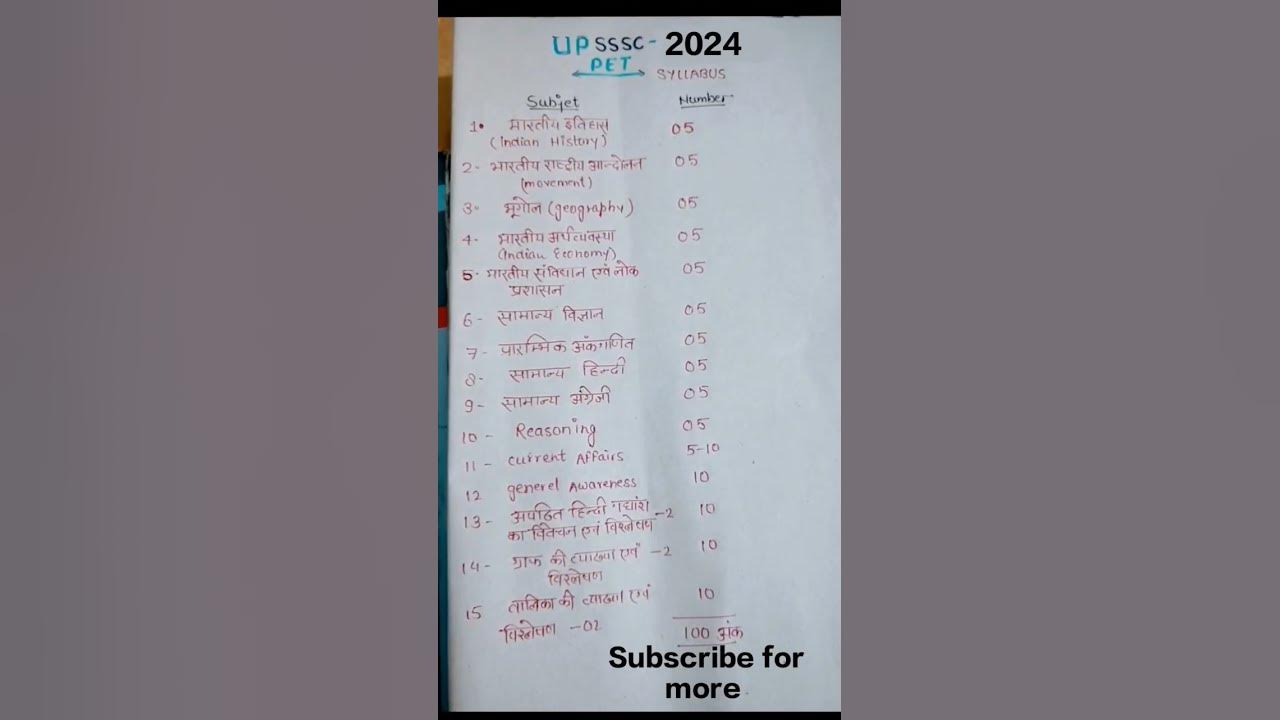 UPSSSC - 2024
PET SYLLABUS
Subjet Number
1. भारतीय इतिहास 05
(Indian History)
2- भारतीय राष्ट्रीय आन्दोलन 05
(movement)
3- भूगोल (geography) 05
4- भारतीय अर्थव्यवस्था 05
(Indian Economy)
5- भारतीय संविधान एवं लोक 05
प्रशासन
6- सामान्य विज्ञान 05
7- प्रारम्भिक अंकगणित 05
8- सामान्य हिन्दी 05
9- सामान्य अंग्रेजी 05
10- Reasoning 05
11- current Affairs 5-10
12 generel Awareness 10
13- अपठित हिन्दी गद्यांश 10
का विवेचन एवं विश्लेषण -2
14- ग्राफ की व्याख्या एवं -2 10
विश्लेषण
15 तालिका की व्याख्या एवं 10
विश्लेषण -02
100 अंक
Subscribe for
more